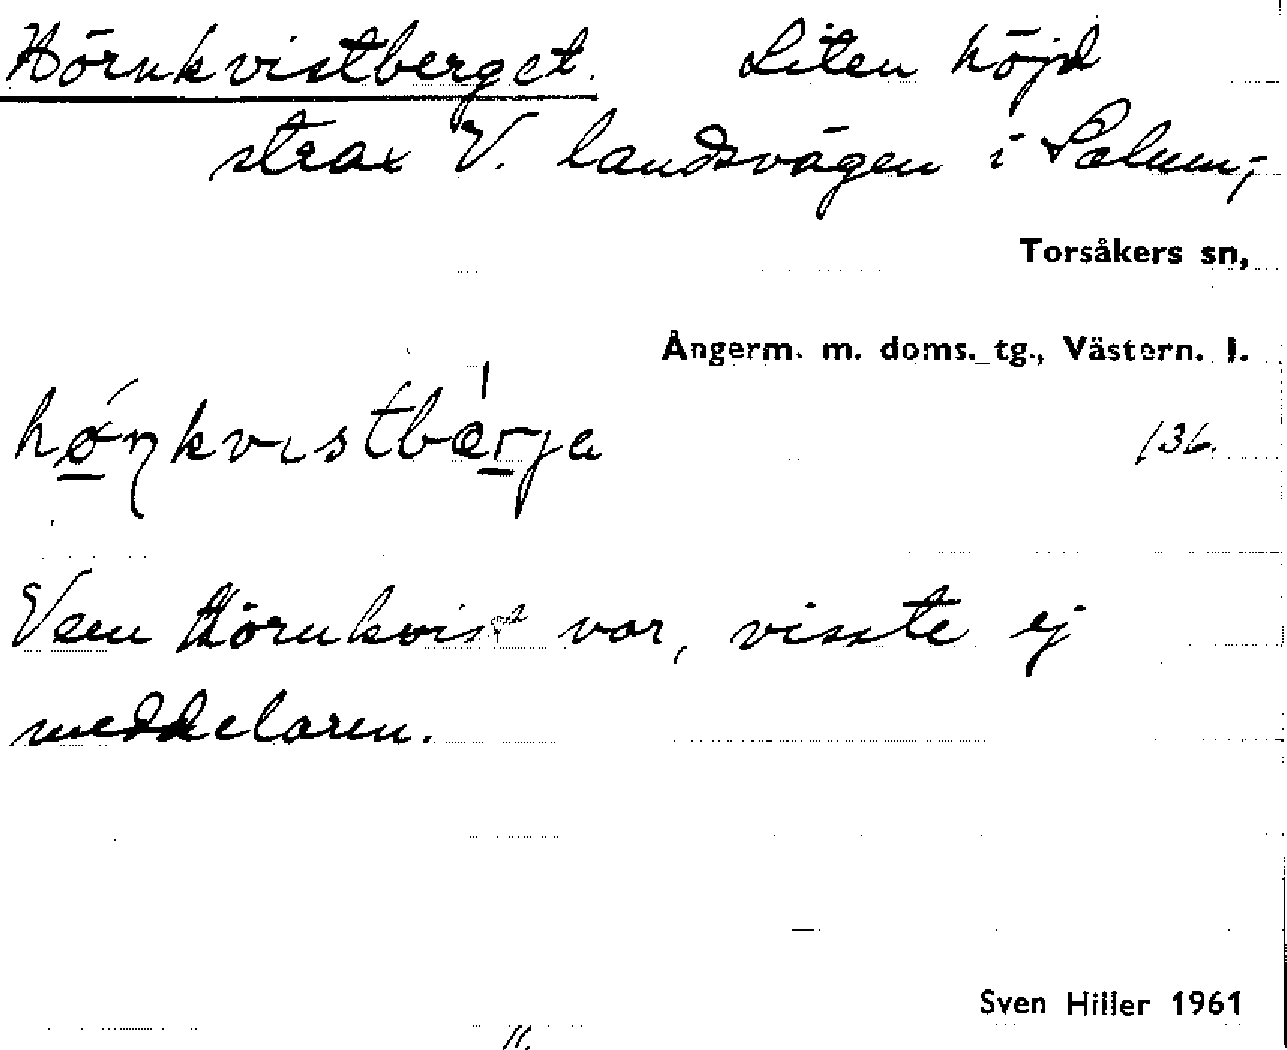 Hörnkvistberget. Liten höjd
strax V. landsvägen i Salum,
Torsåkers sn,
Ångerm. m. doms. tg., Västern. l.
136.
Vem Hörnkvist var, visste ej
meddelaren.
Sven Hiller 1961